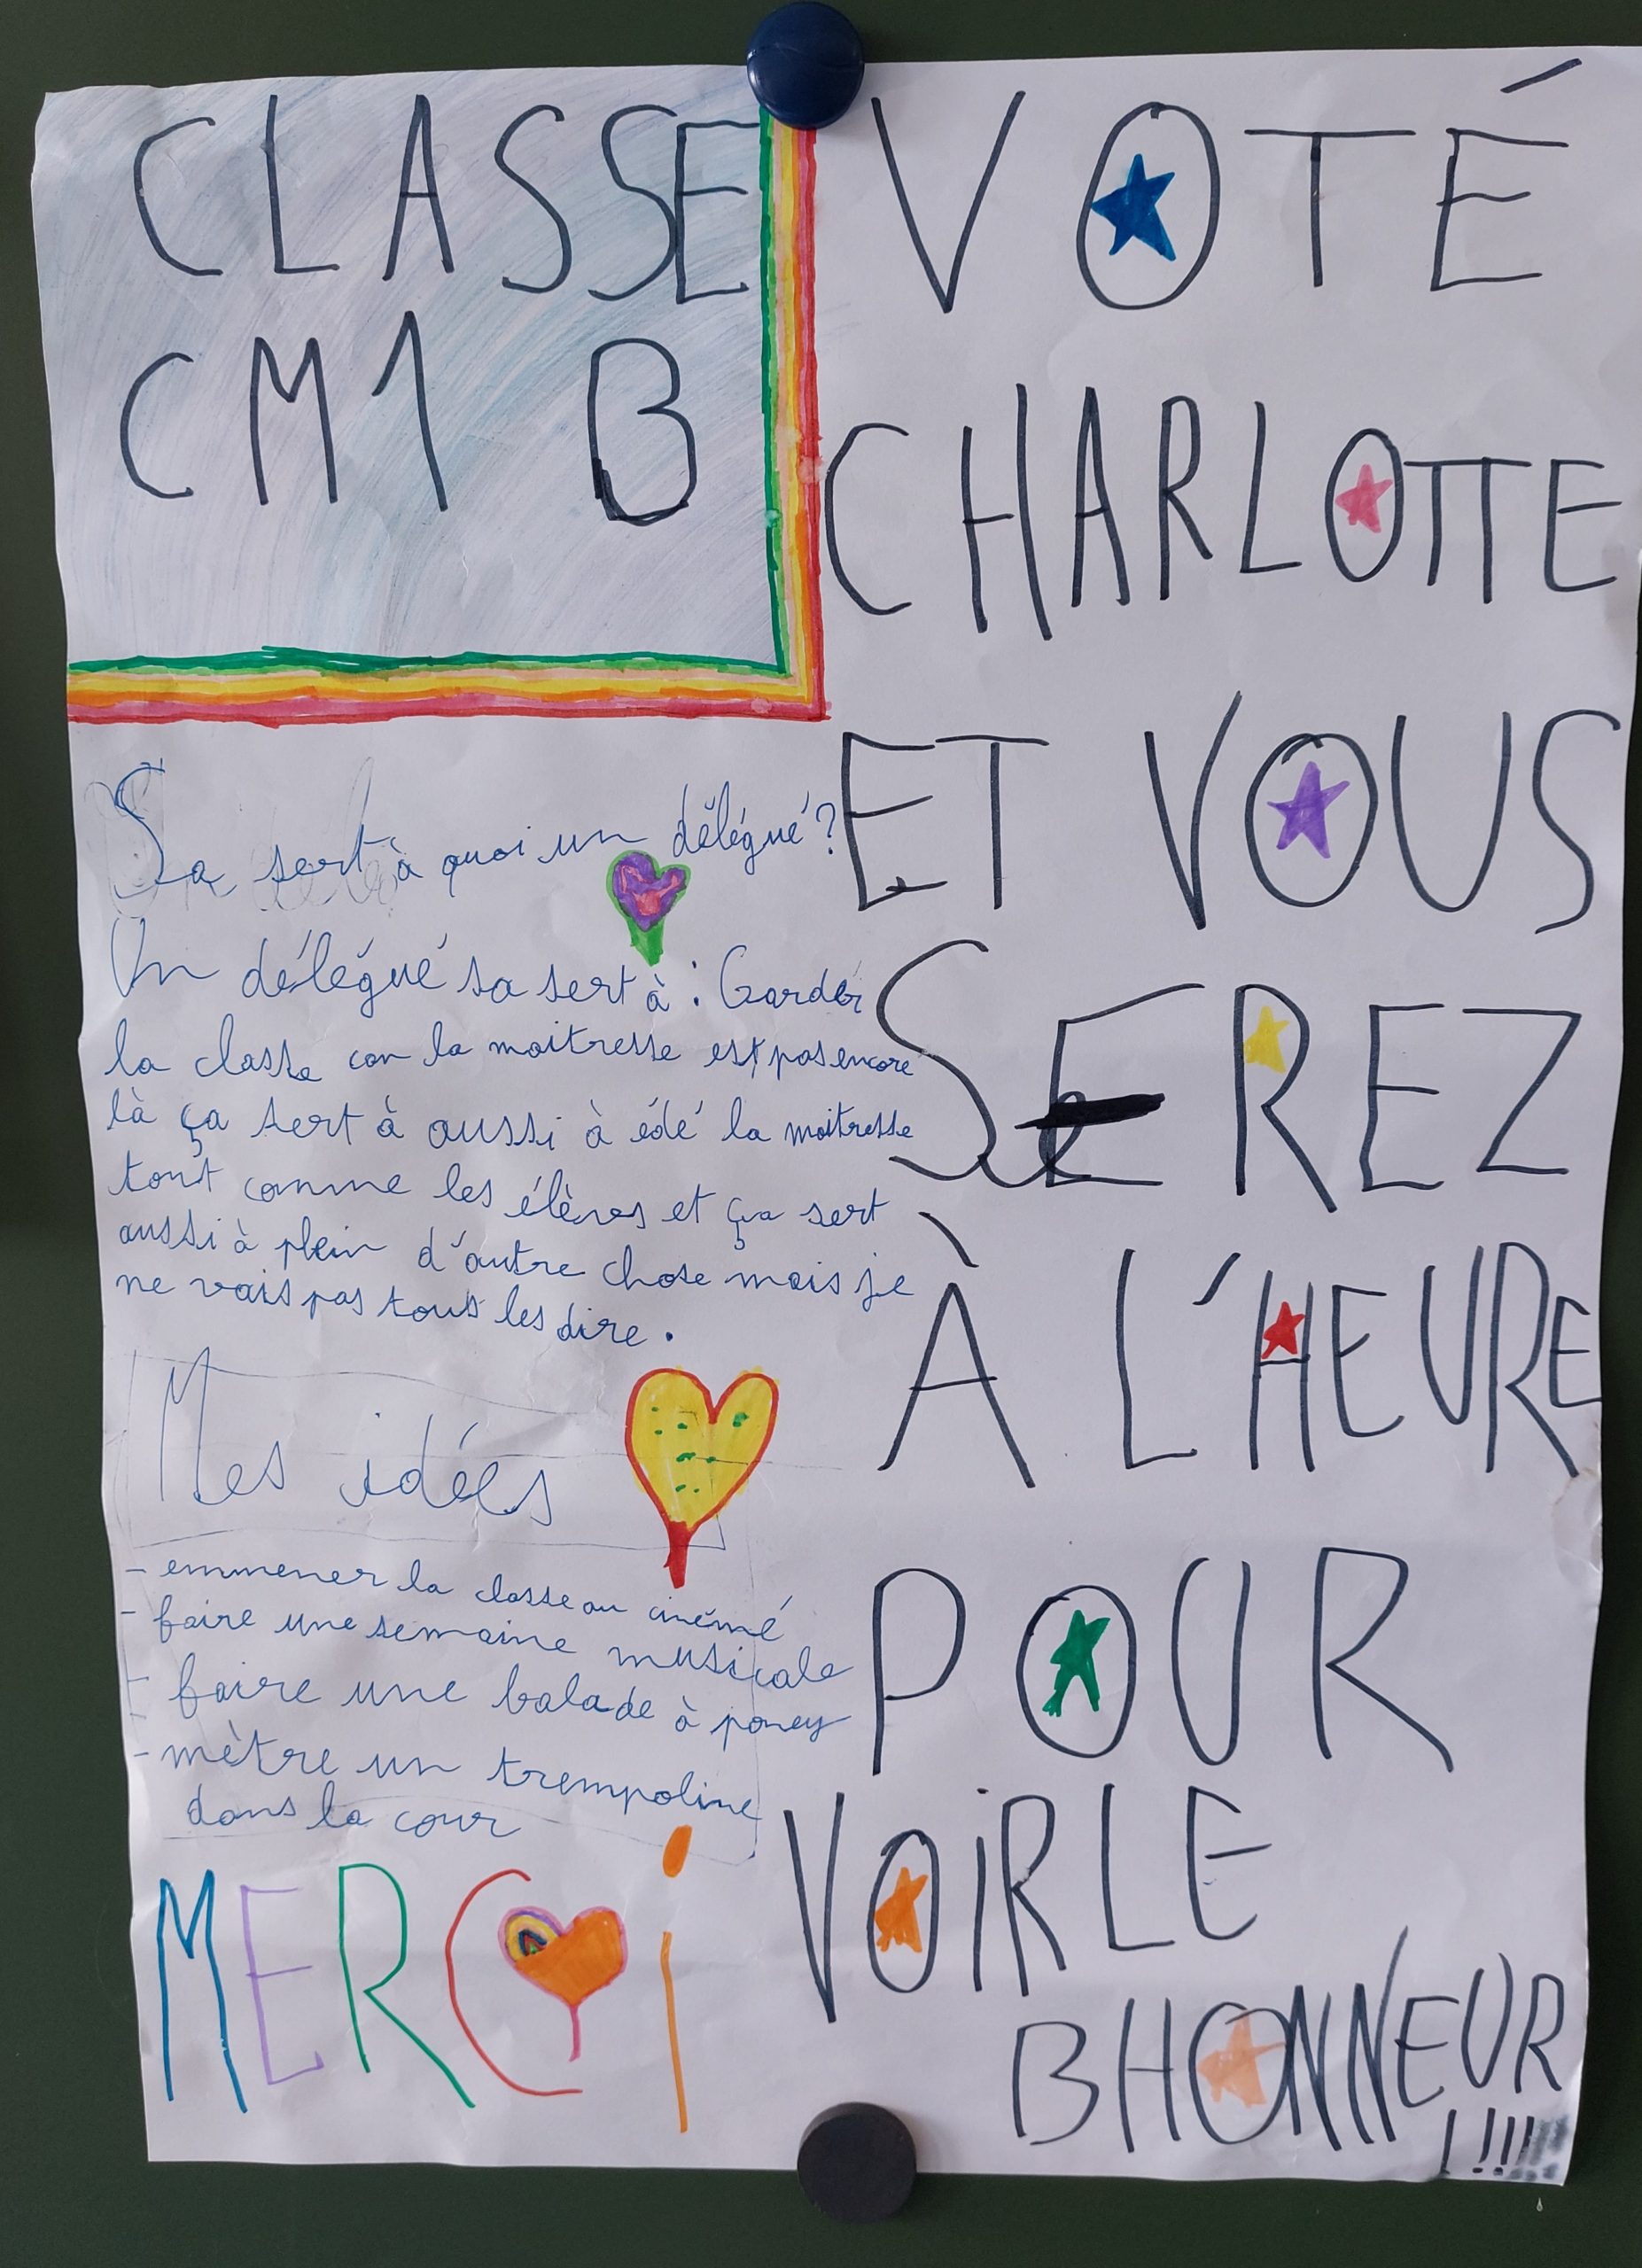 CLASSE
CM1 B
Sa sert à quoi un délégué?
Un délégué sa sert à : Garder
la classe car la maitresse est pas encore
là ça sert à aussi à édé la maitresse
tout comme les élèves et ça sert
aussi à plein d'autre chose mais je
ne vais pas tous les dire.
Mes idées
- emmener la classe au cinémé
- faire une semaine musicale
- faire une balade à poney
- mètre un trempoline
dans la cour
MERCi
VOTÉ
CHARLOTTE
ET VOUS
SEREZ
À L'HEURE
POUR
VOiR LE
BHONNEUR
!!!!!